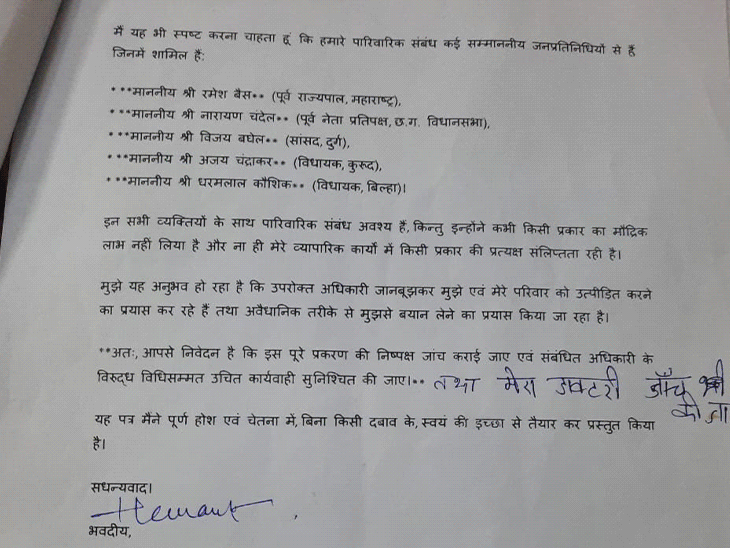 मैं यह भी स्पष्ट करना चाहता हूं कि हमारे पारिवारिक संबंध कई सम्माननीय जनप्रतिनिधियों से हैं
जिनमें शामिल हैं:
***माननीय श्री रमेश बैस** (पूर्व राज्यपाल, महाराष्ट्र),
***माननीय श्री नारायण चंदेल** (पूर्व नेता प्रतिपक्ष, छ.ग. विधानसभा),
***माननीय श्री विजय बघेल** (सांसद, दुर्ग),
***माननीय श्री अजय चंद्राकर** (विधायक, कुरूद),
***माननीय श्री धरमलाल कौशिक** (विधायक, बिल्हा)।
इन सभी व्यक्तियों के साथ पारिवारिक संबंध अवश्य हैं, किन्तु इन्होंने कभी किसी प्रकार का मौद्रिक
लाभ नहीं लिया है और ना ही मेरे व्यापारिक कार्यों में किसी प्रकार की प्रत्यक्ष संलिप्तता रही है।
मुझे यह अनुभव हो रहा है कि उपरोक्त अधिकारी जानबूझकर मुझे एवं मेरे परिवार को उत्पीड़ित करने
का प्रयास कर रहे हैं तथा अवैधानिक तरीके से मुझसे बयान लेने का प्रयास किया जा रहा है।
**अतः, आपसे निवेदन है कि इस पूरे प्रकरण की निष्पक्ष जांच कराई जाए एवं संबंधित अधिकारी के
विरुद्ध विधिसम्मत उचित कार्यवाही सुनिश्चित की जाए।** तथा मेरा डाक्टरी जाँच भी
की जा
यह पत्र मैंने पूर्ण होश एवं चेतना में, बिना किसी दबाव के, स्वयं की इच्छा से तैयार कर प्रस्तुत किया
है।
सधन्यवाद।
Hemant
भवदीय,